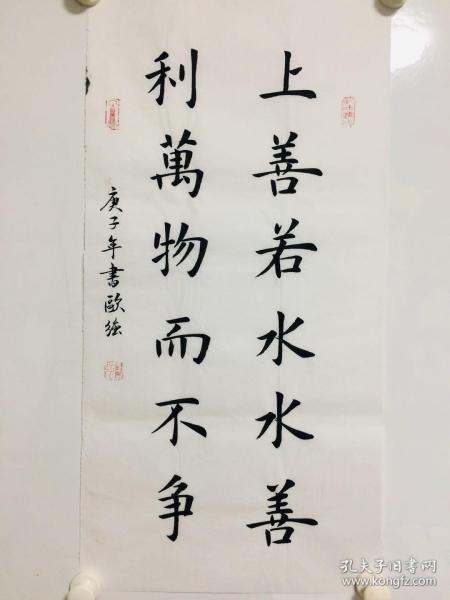 上善若水水善
利萬物而不争
庚子年書歐強
孔夫子旧书网
www.kongfz.com